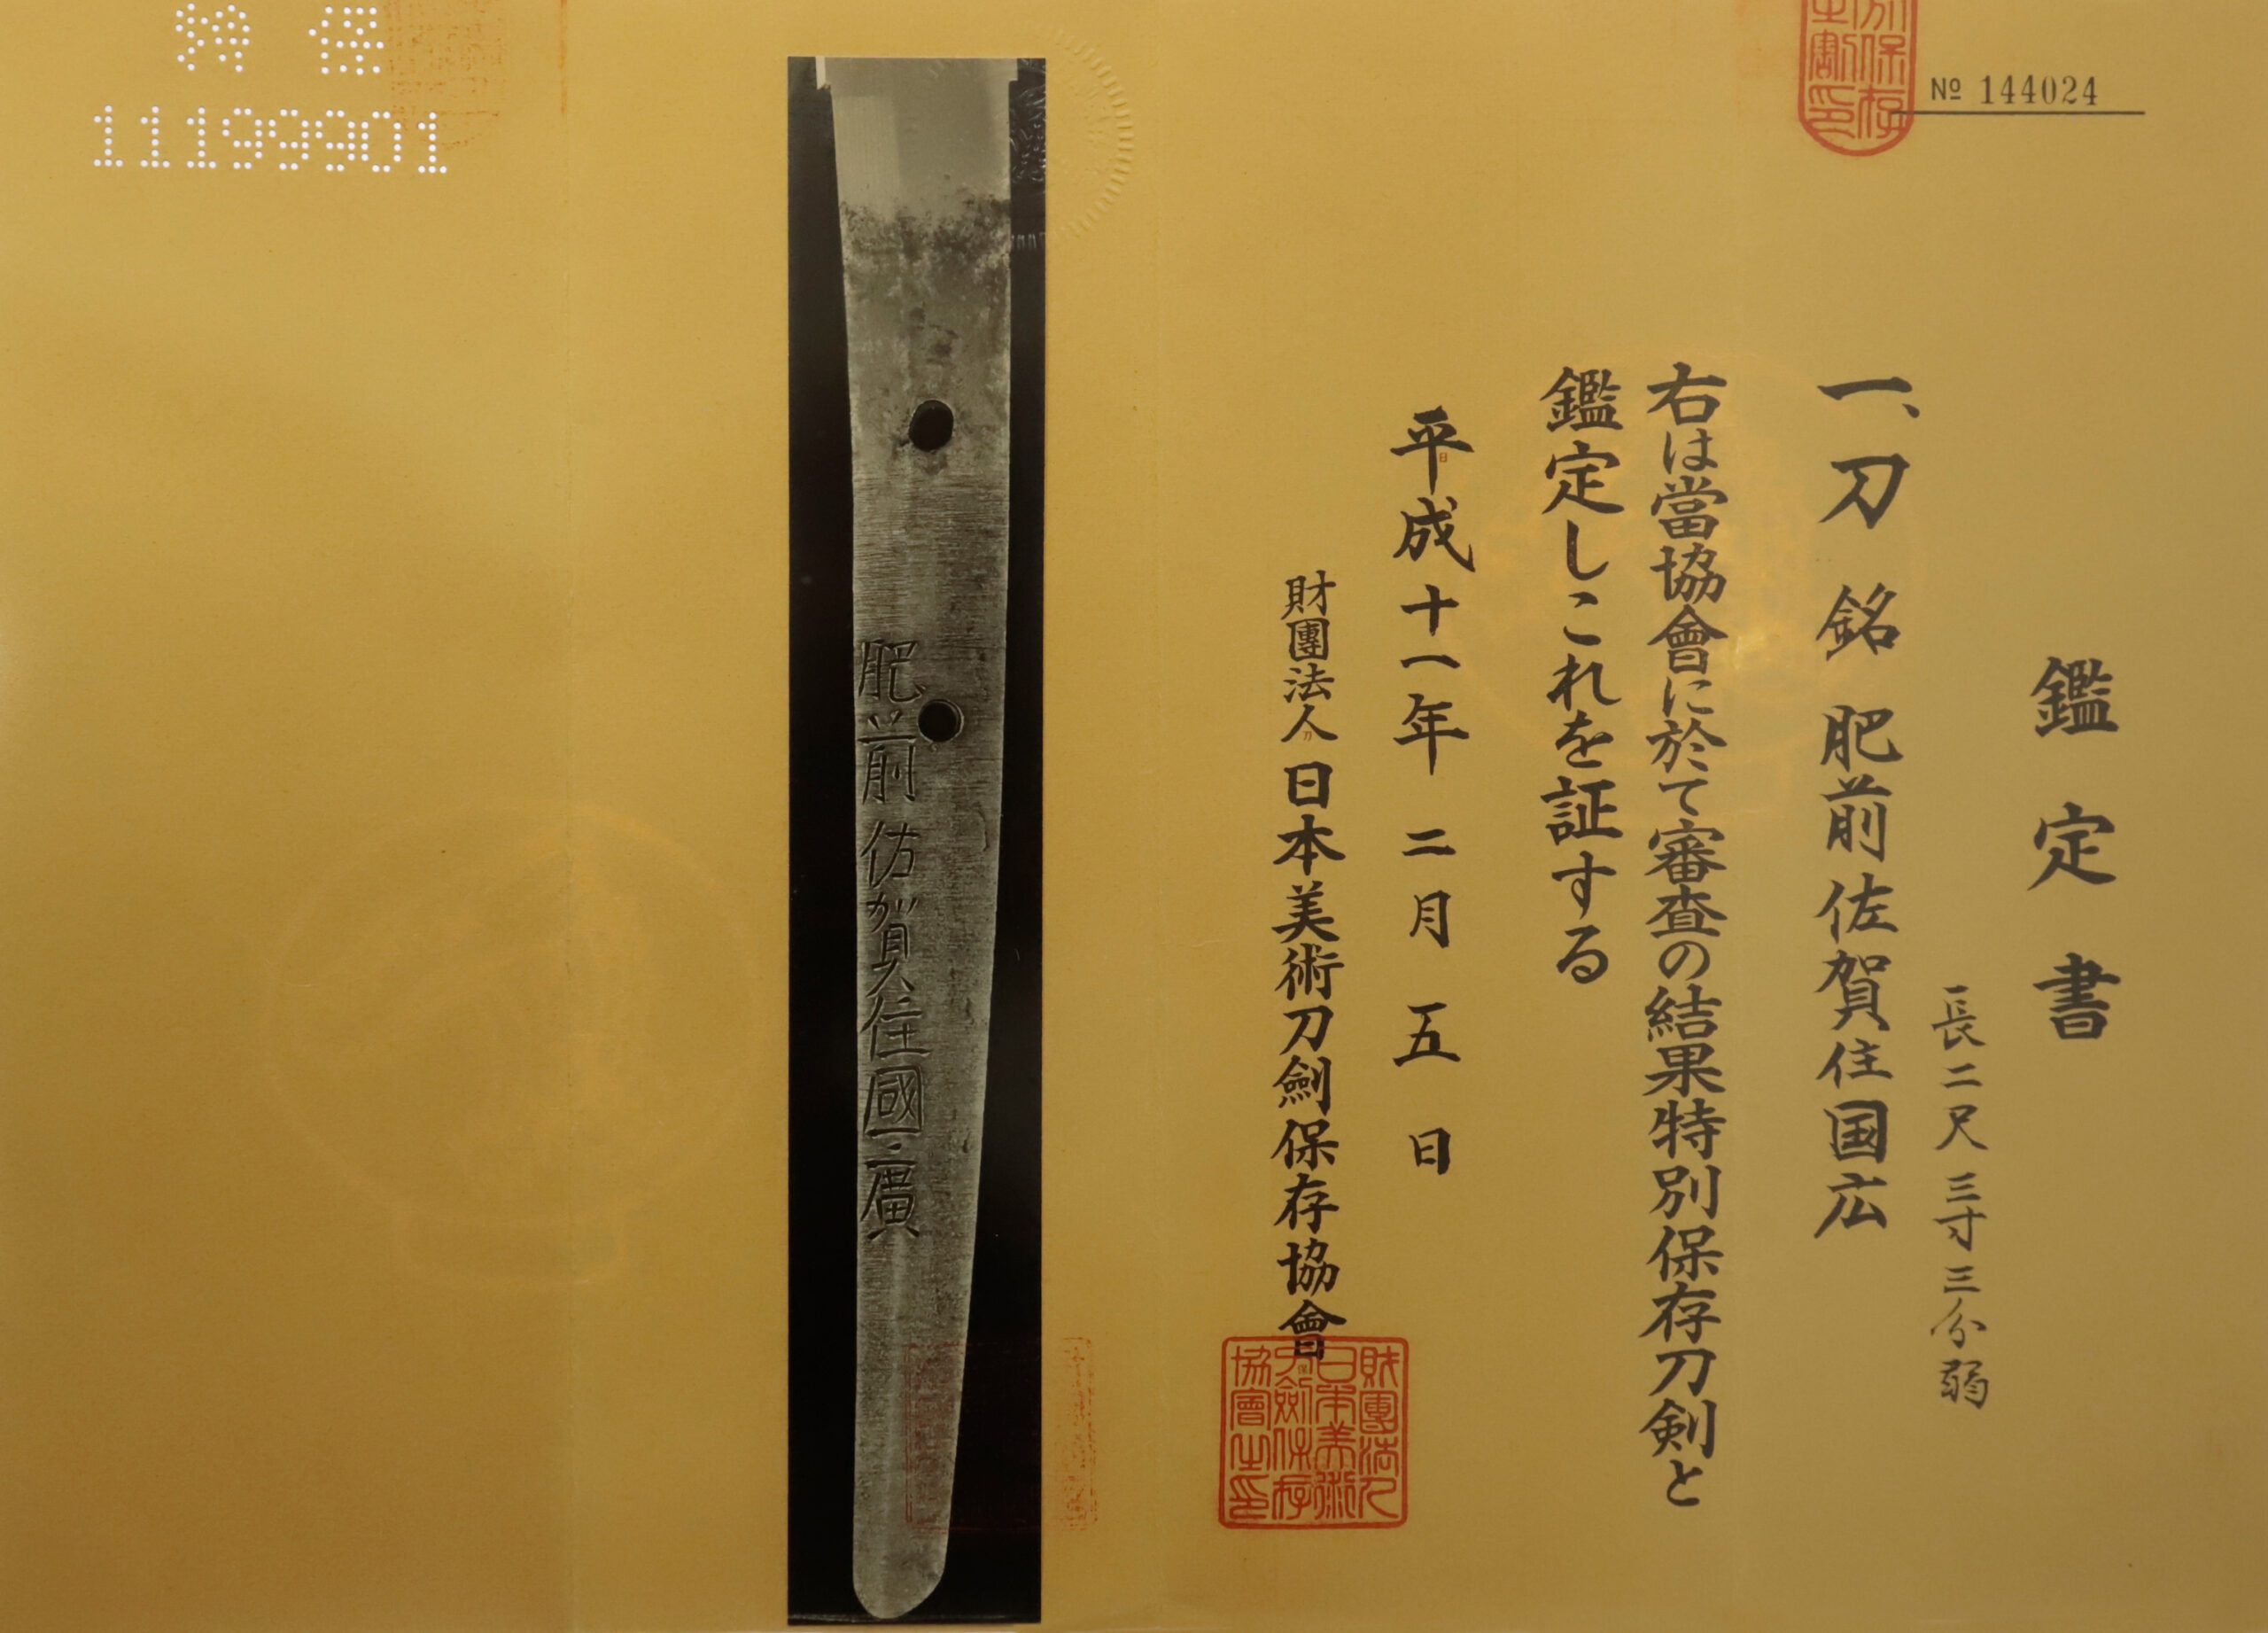 No 144024
鑑定書
長二尺三寸三分弱
一、刀 銘 肥前佐賀住国広
右は當協會に於て審査の結果特別保存刀剣と
鑑定しこれを証する
平成十一年二月五日
財團法人日本美術刀劍保存協會
財團法人
日本美術
刀劍保存
協會之印
肥前佐賀住國廣
特保
11199901